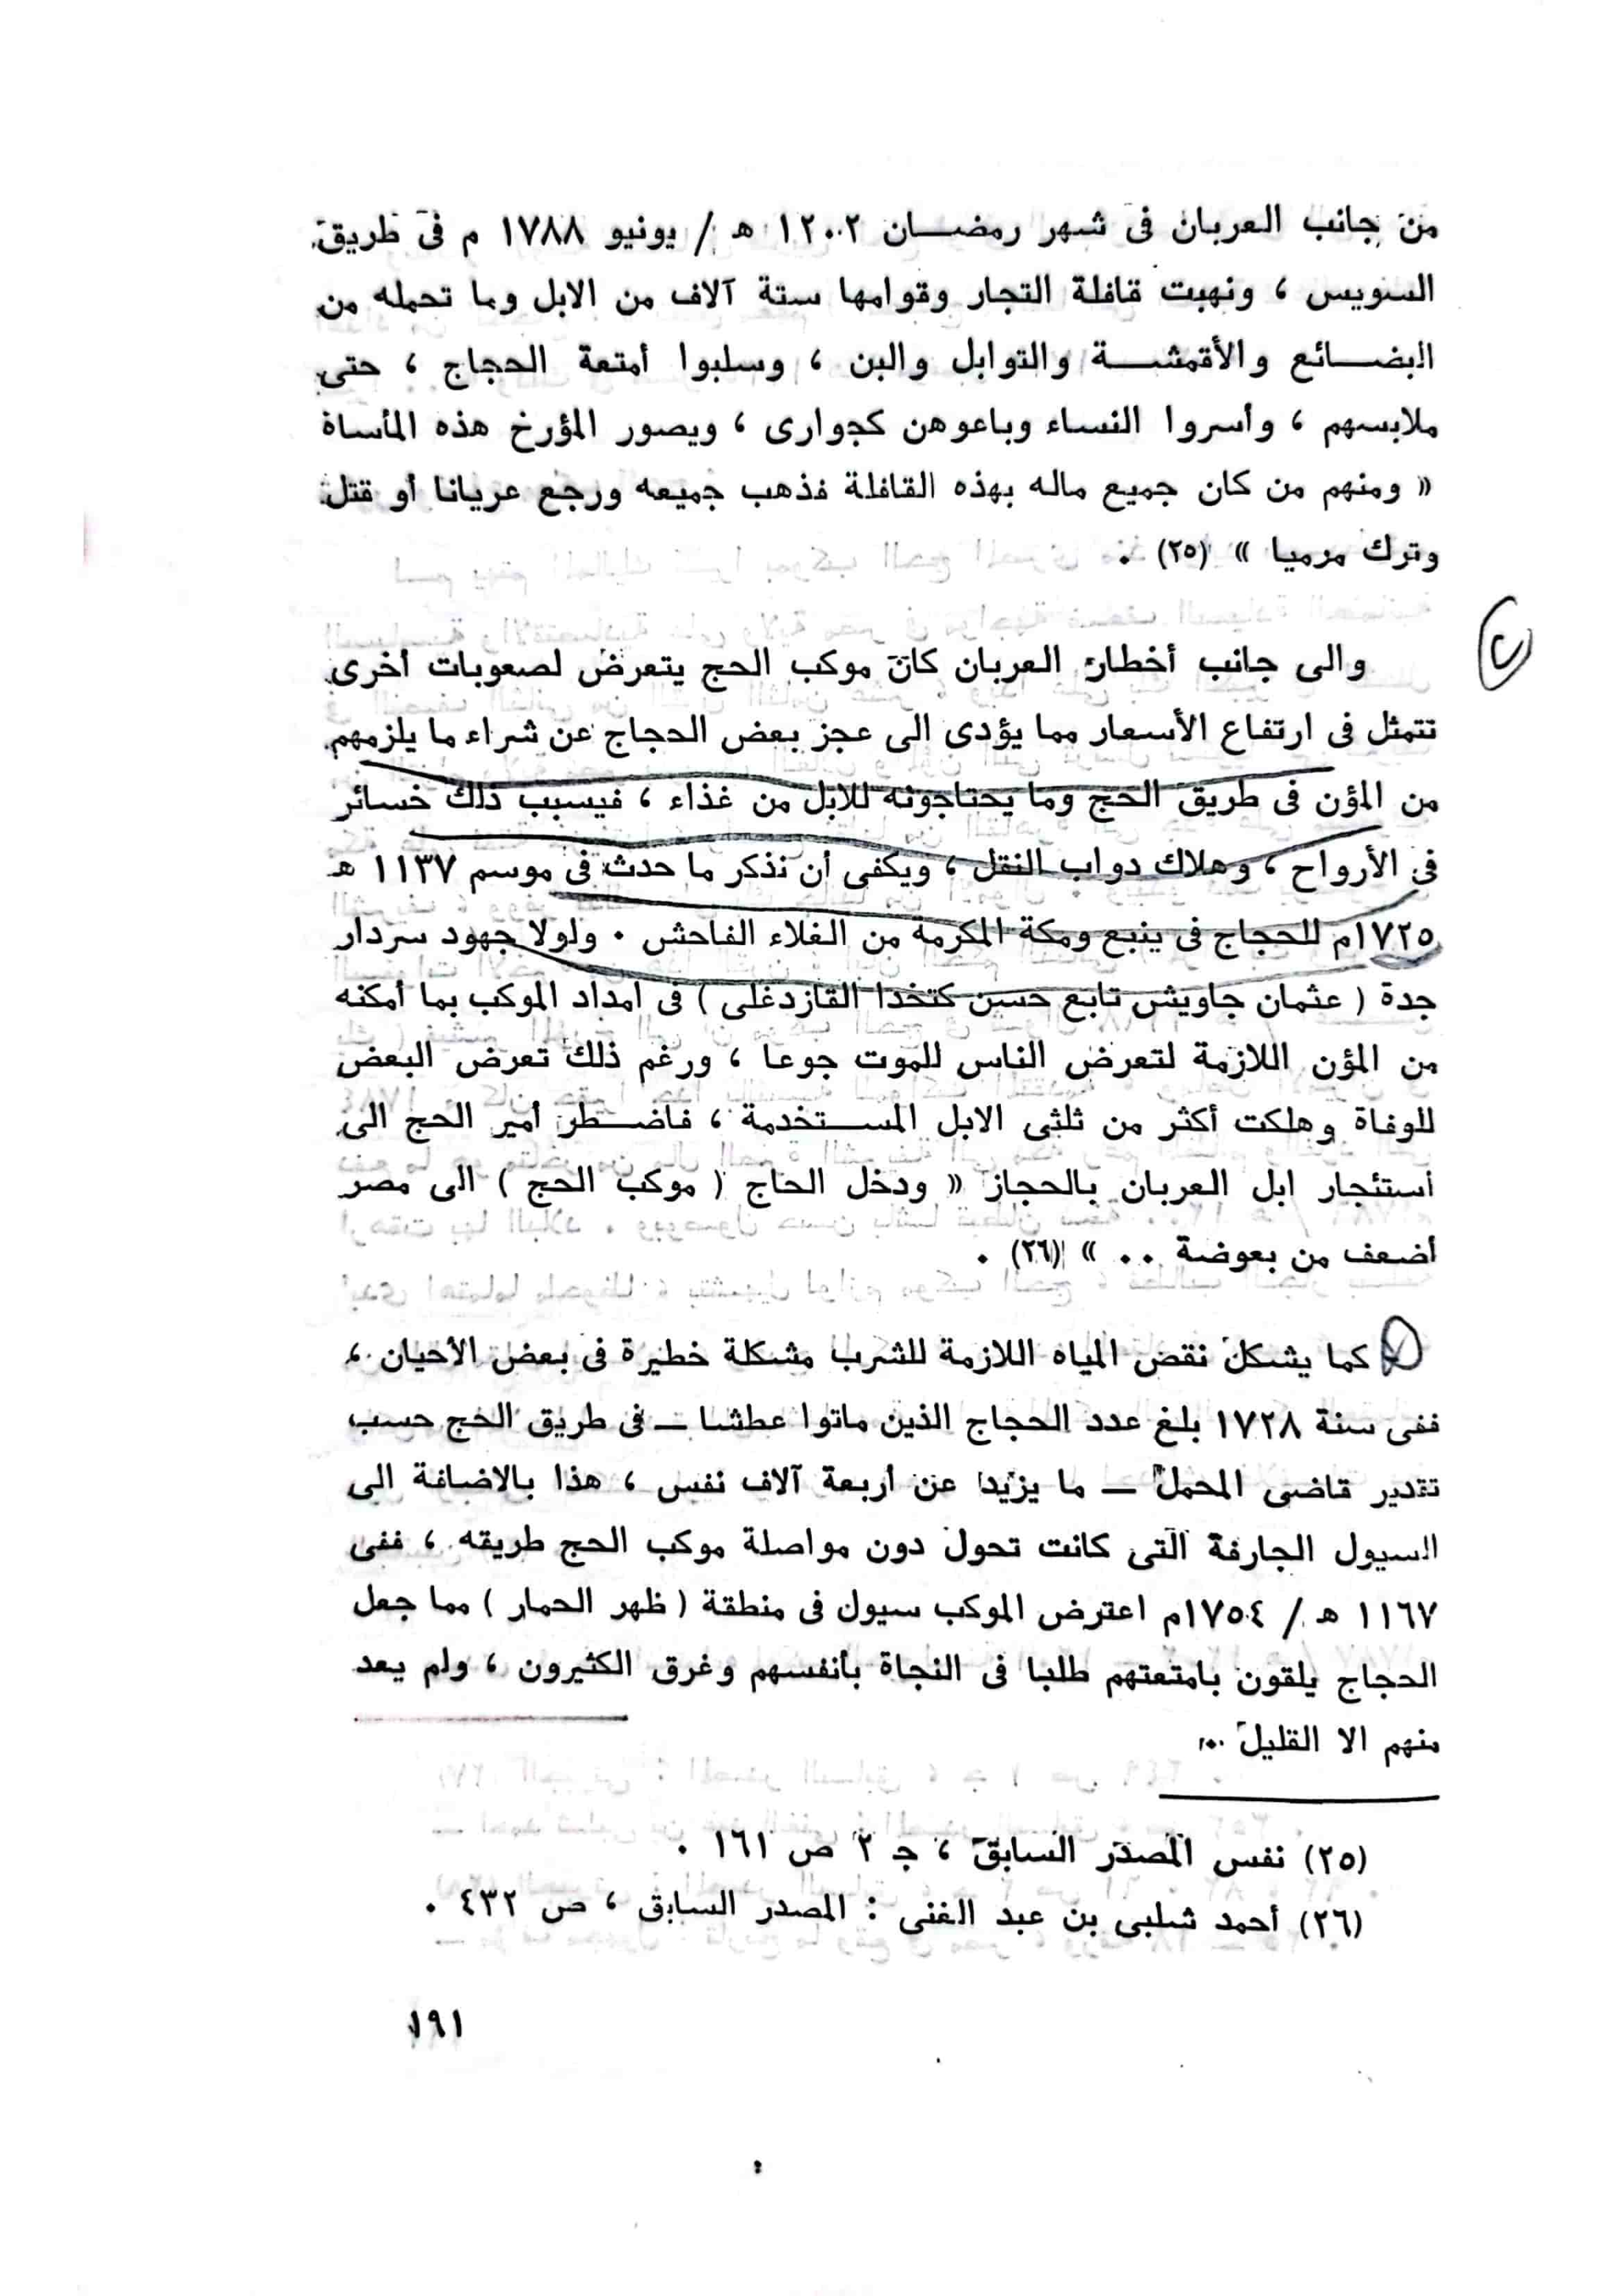 من جانب العربان فى شهر رمضان ١٢٠٢ هـ / يونيو ١٧٨٨ م فى طريق
السويس ، ونهبت قافلة التجار وقوامها ستة آلاف من الابل وما تحمله من
البضائع والأقمشة والتوابل والبن ، وسلبوا أمتعة الحجاج ، حتى
ملابسهم ، وأسروا النساء وباعوهن كجوارى ، ويصور المؤرخ هذه المأساة
« ومنهم من كان جميع ماله بهذه القافلة فذهب جميعه ورجع عريانا أو قتل
وترك مرميا » (٢٥) .
والى جانب أخطار العربان كان موكب الحج يتعرض لصعوبات أخرى
تتمثل فى ارتفاع الأسعار مما يؤدى الى عجز بعض الحجاج عن شراء ما يلزمهم
من المؤن فى طريق الحج وما يحتاجونه للابل من غذاء ، فيسبب ذلك خسائر
فى الأرواح ، وهلاك دواب النقل ، ويكفى أن نذكر ما حدث فى موسم ١١٣٧ هـ
١٧٢٥م للحجاج فى ينبع ومكة المكرمة من الغلاء الفاحش . ولولا جهود سردار
جدة ( عثمان جاويش تابع حسن كتخدا القازدغلى ) فى امداد الموكب بما أمكنه
من المؤن اللازمة لتعرض الناس للموت جوعا ، ورغم ذلك تعرض البعض
للوفاة وهلكت أكثر من ثلثى الابل المستخدمة ، فاضطر أمير الحج الى
استئجار ابل العربان بالحجاز « ودخل الحاج ( موكب الحج ) الى مصر
أضعف من بعوضة . . » (٢٦) .
كما يشكل نقص المياه اللازمة للشرب مشكلة خطيرة فى بعض الأحيان ،
ففى سنة ١٧٢٨ بلغ عدد الحجاج الذين ماتوا عطشا — فى طريق الحج حسب
تقدير قاضى المحمل — ما يزيد عن أربعة آلاف نفس ، هذا بالاضافة الى
السيول الجارفة التى كانت تحول دون مواصلة موكب الحج طريقه ، ففى
١١٦٧ هـ / ١٧٥٤م اعترض الموكب سيول فى منطقة ( ظهر الحمار ) مما جعل
الحجاج يلقون بامتعتهم طلبا فى النجاة بأنفسهم وغرق الكثيرون ، ولم يعد
منهم الا القليل ..
(٢٥) نفس المصدر السابق ، جـ ٢ ص ١٦١ .
(٢٦) أحمد شلبى بن عبد الغنى : المصدر السابق ، ص ٤٣٢ .
١٩١